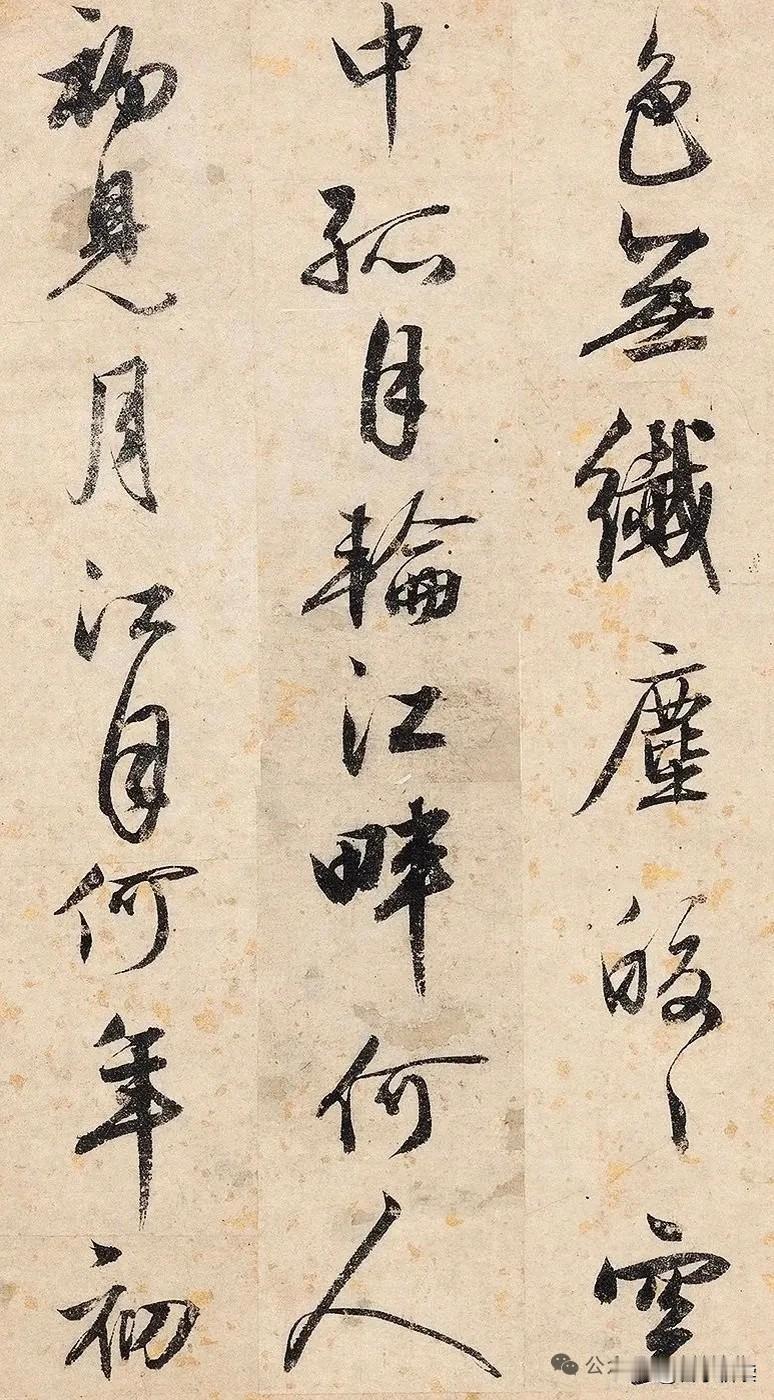 色無纖塵皎〻空
中孤月輪江畔何人
初見月江月何年初
公